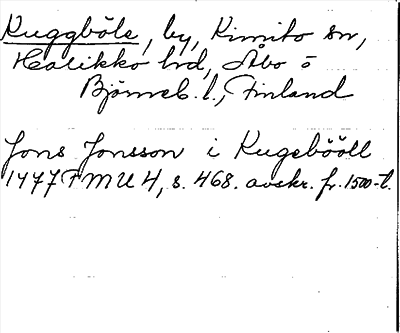 Kuggböle, by, Kimito sn,
Halikko hrd, Åbo o
Björneb. l., Finland
Jons Jonsson i Kugebööll
1477 FMU 4, s. 468. avskr. fr. 1500-t.